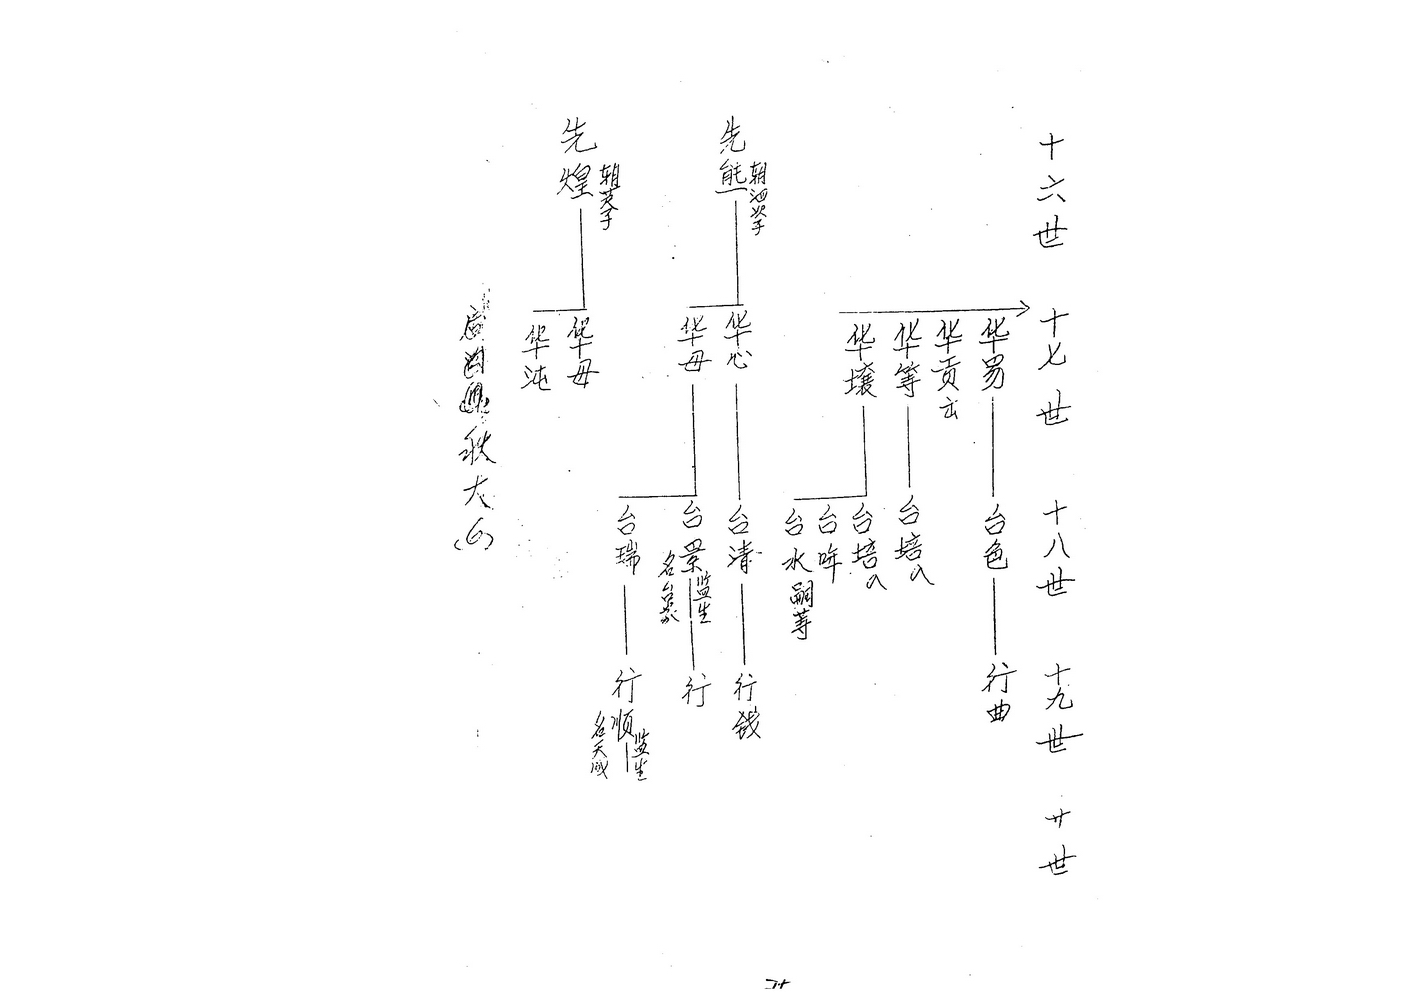 十六世
十七世
十八世
十九世
廿世
华易
台色
行曲
华贡
华等
台培
华壤
台培
台哞
台水
嗣等
先能
朝泗次子
华心
台清
行钱
华毋
台景
监生
名台蒙
行
台瑞
行顺
监生
名天成
先煌
朝英子
华毋
华沌
秋大(6)